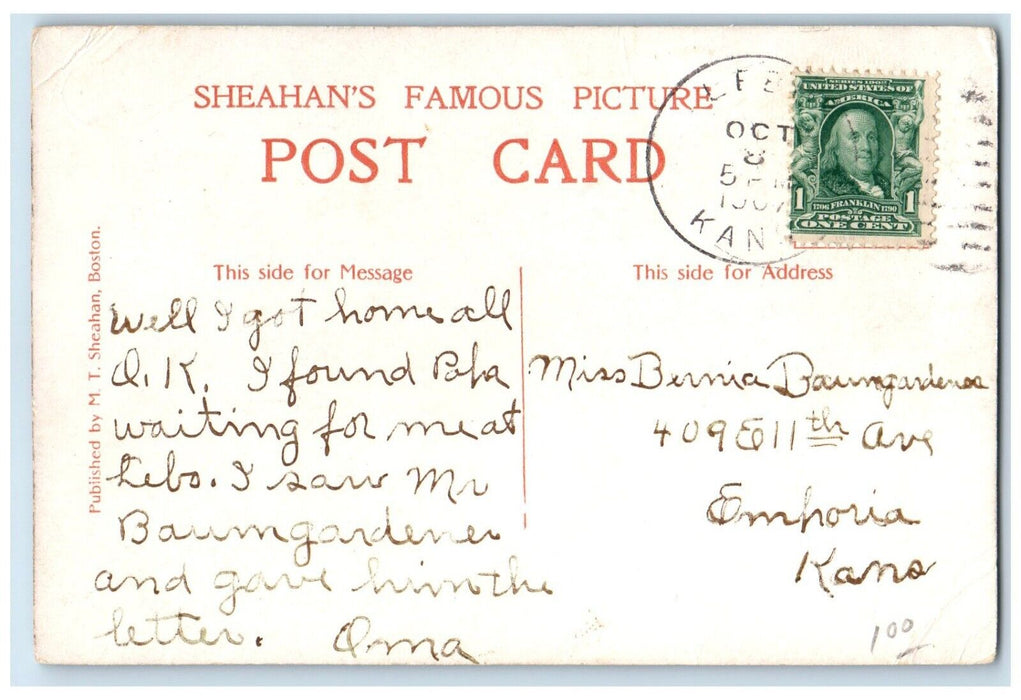 SHEAHAN'S FAMOUS PICTURE
POST CARD
OCT
8
5 PM
1907
KANS
SERIES 1902
UNITED STATES OF
AMERICA
1706 FRANKLIN 1790
1 1
POSTAGE
ONE CENT
Published by M. T. Sheahan, Boston.
This side for Message
well I got home all
O.K. I found Papa
waiting for me at
Lebo. I saw Mr
Baumgardener
and gave him the
letter. Oma
This side for Address
Miss Bernia Baumgardener
409 E 11th Ave
Emporia
Kans
1 00